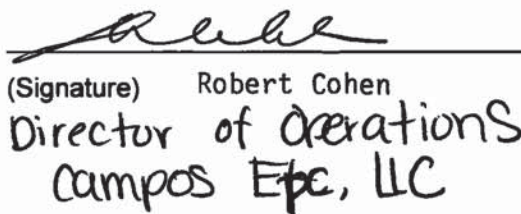 (Signature) Robert Cohen
Director of Operations
Campos Epc, LLC